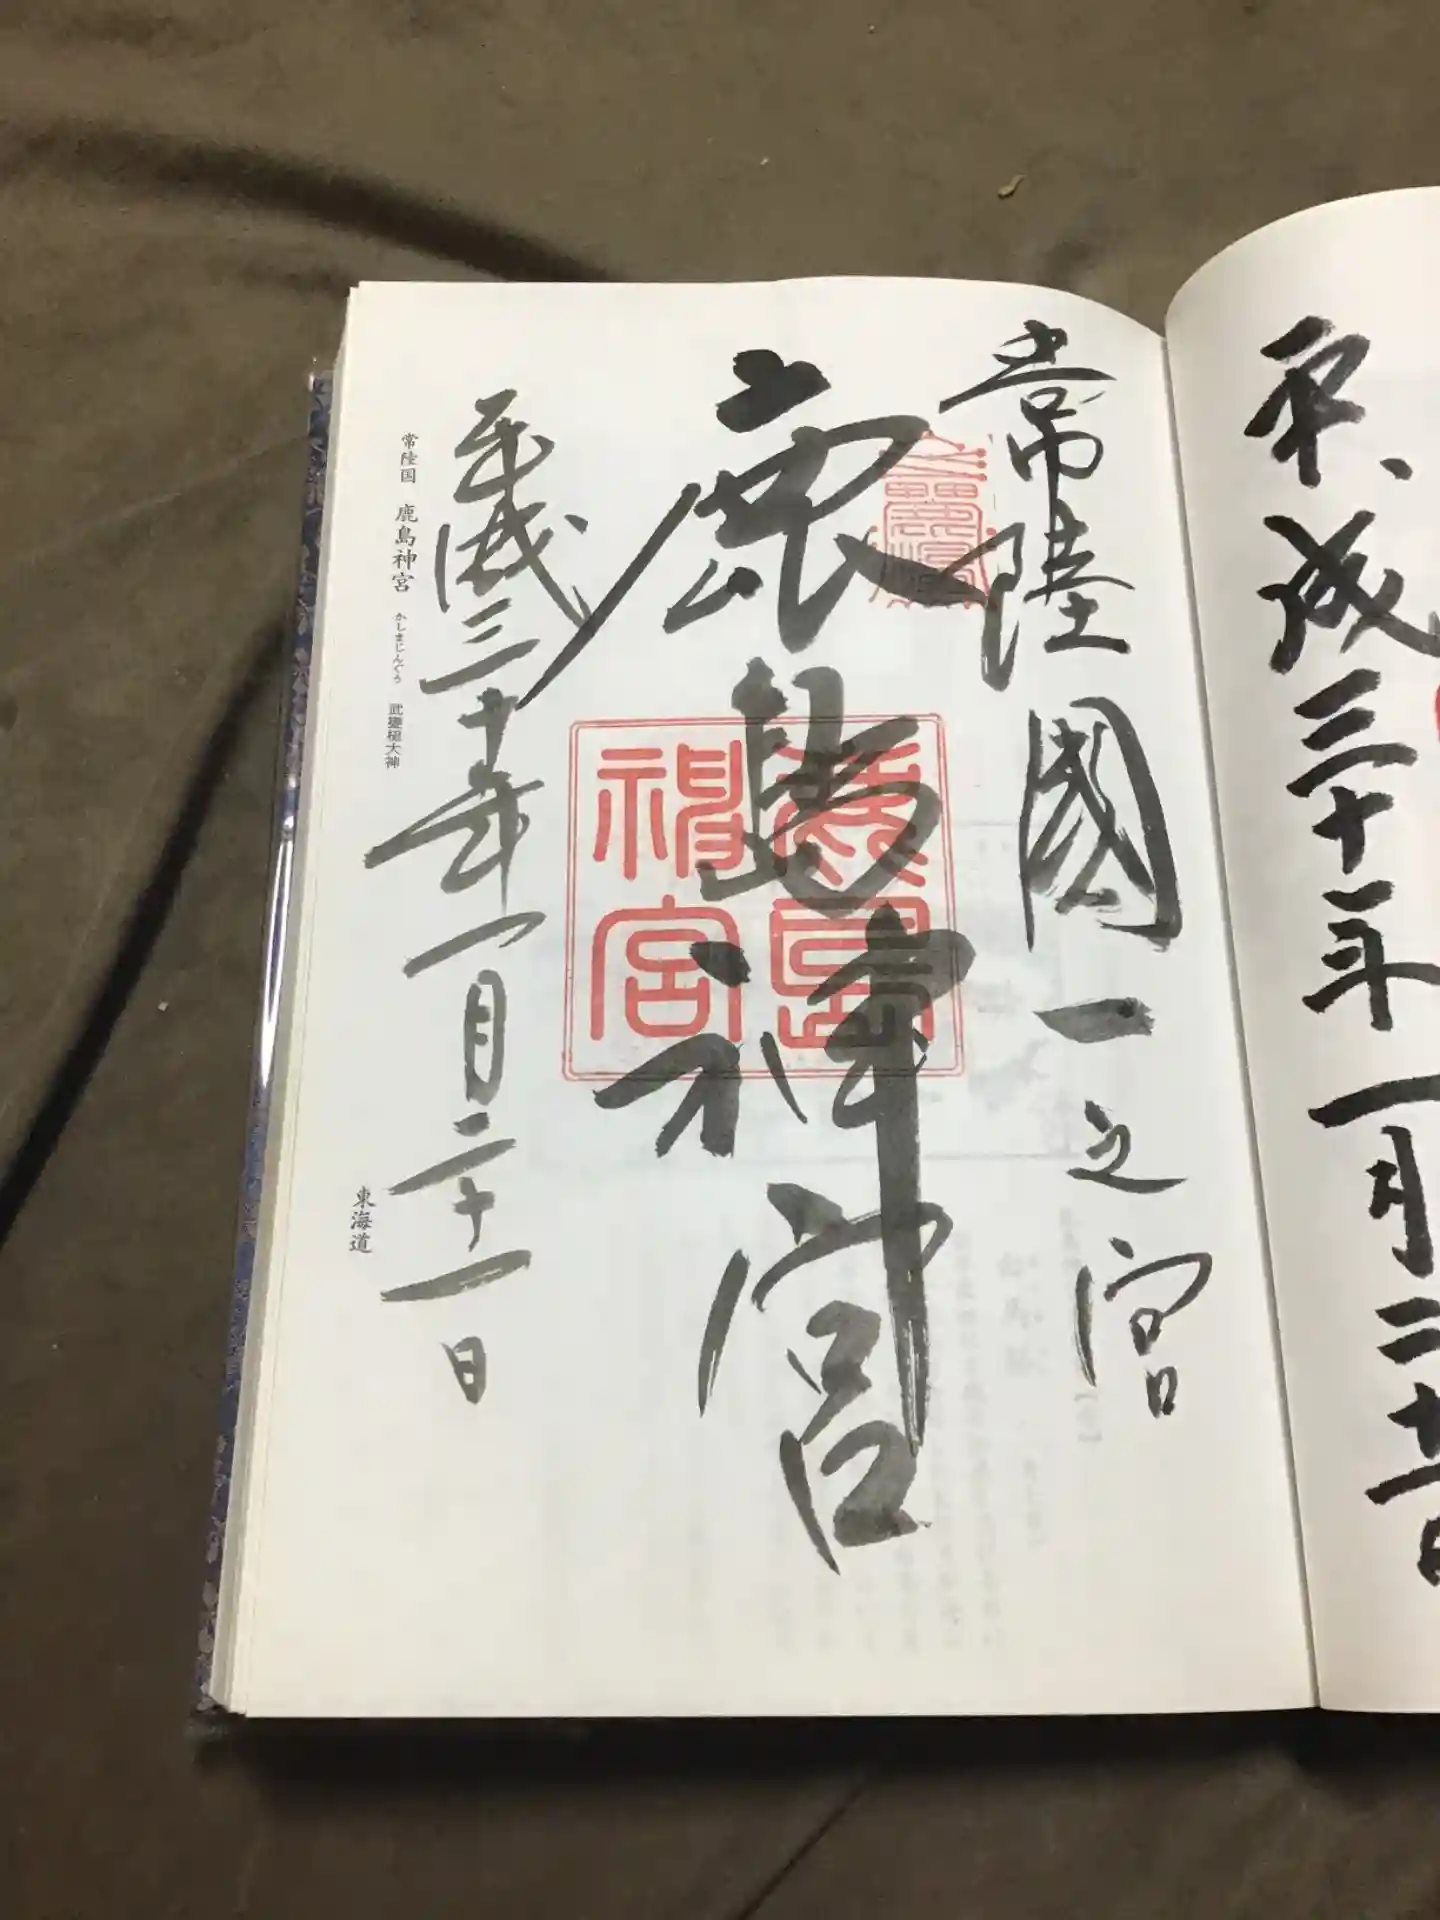 平成三十一年一月二十一日
常陸國一之宮
鹿島神宮
鹿島神宮
平成三十一年一月二十一日
常陸国 鹿島神宮 かしまじんぐう 武甕槌大神
東海道